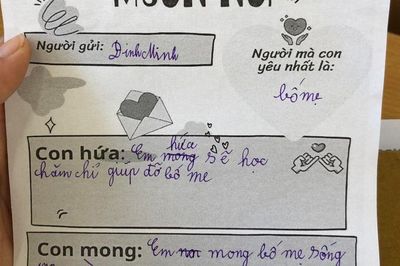 MUỐN NÓI
Người gửi: Đinh Minh
Người mà con
yêu nhất là:
bố mẹ
hứa
Con hứa: Em mong sẽ học
chăm chỉ giúp đỡ bố mẹ
Con mong: Em mong bố mẹ sống